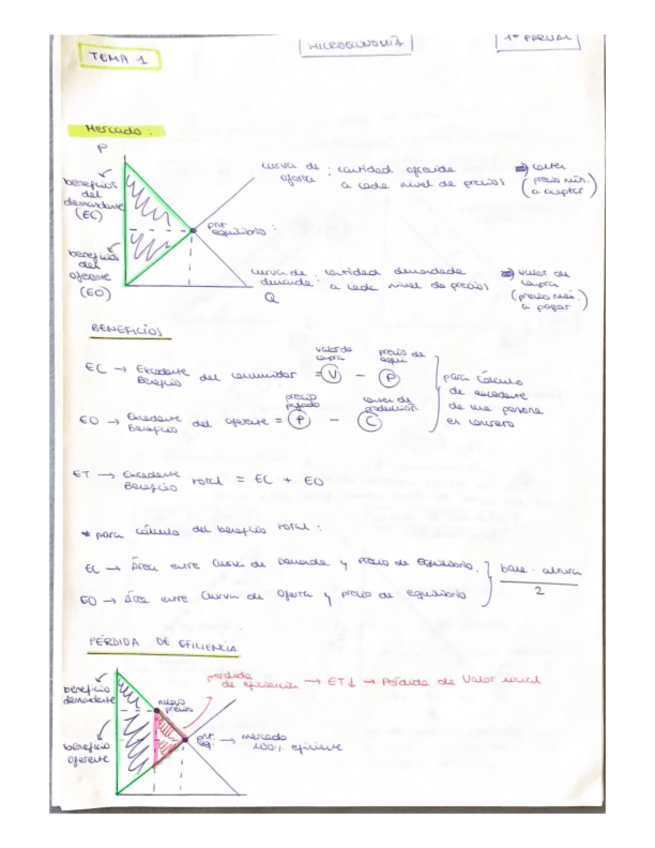 TEMA 1
MICROECONOMÍA
1º PARCIAL
Mercado :
P
beneficios del demandante (EC)
beneficios del oferente (EO)
pnt. equilibrio :
curva de oferta : cantidad ofrecida a cada nivel de precios
⇒ costes (precio mín. a aceptar)
curva de demanda : cantidad demandada a cada nivel de precios
⇒ valor de compra (precio máx. a pagar)
Q
BENEFICIOS
valor de compra
precio de
EC → Excedente Beneficio del consumidor = V - P
precio
costes de producción
EO → Excedente Beneficio del oferente = P - C
para cálculo de excedente de una persona en concreto
ET → Excedente Beneficio total = EC + EO
* para cálculo del beneficio total :
EC → Área entre Curva de Demanda y precio de equilibrio.
EO → Área entre Curva de Oferta y precio de equilibrio
base · altura
2
PÉRDIDA DE EFICIENCIA
beneficio demandante
beneficio oferente
nuevo precio
perdida de eficiencia → ET↓ → Pérdida de Valor social
pnt. eq. → mercado 100% eficiente